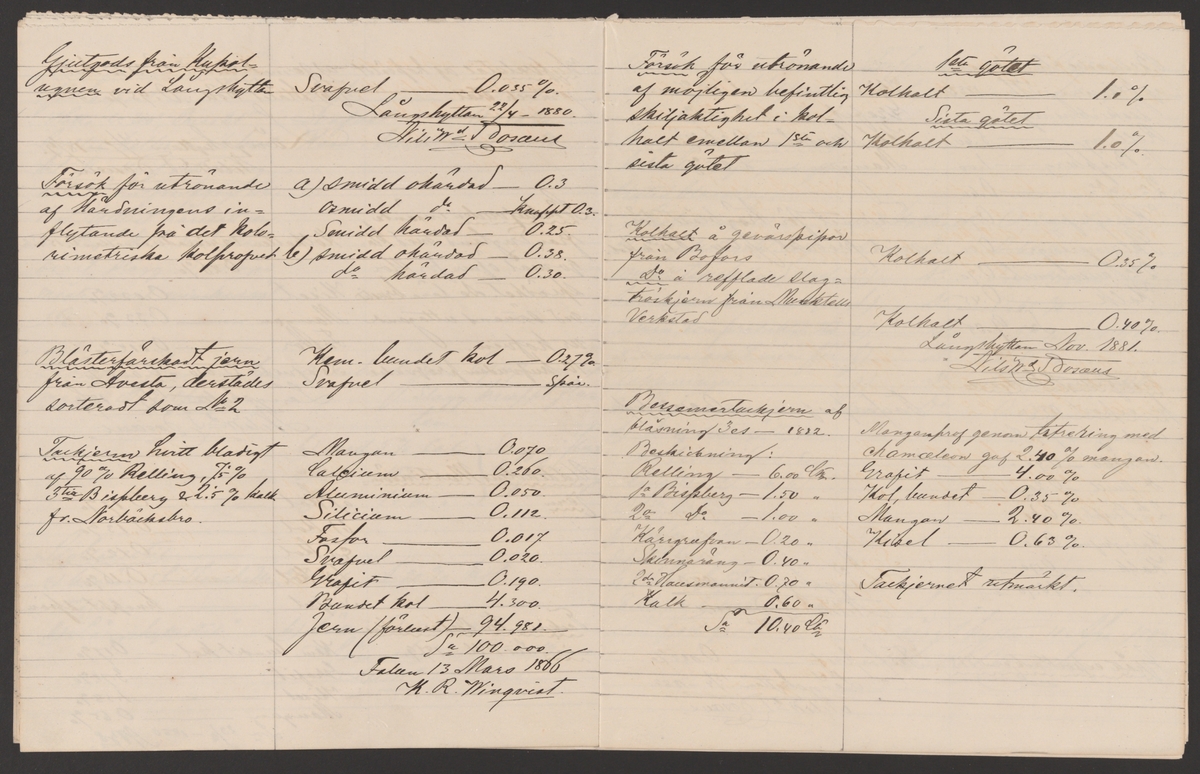 Gjutgods från Kupol-
ugnen vid Långshyttan Svafvel — 0.035 %.
Långshyttan 28/4 - 1880.
Försök för utrönande a) smidd ohärdad — 0.3
af Härdningens in= osmidd do — knappt 0.3.
flytande på det kolo= smidd härdad — 0.25
rimetriska kolprofvet b) smidd ohärdad — 0.38.
do härdad — 0.30.
Blästerfärskadt jern Kem. bundet kol — 0.27%.
från Avesta, derstädes Svafvel — spår.
sorteradt som No 2
Tackjern hvitt bladigt Mangan — 0.070
af 90% Relling, 7.5% Calcium — 0.260.
3tia Bispberg & 2.5% kalk Aluminium — 0.050
fr. Norbäcksbro. Silicium — 0.112.
Fosfor — 0.017
Svafvel — 0.020.
Grafit — 0.190.
Bundet kol — 4.300.
Jern (förlust) — 94.981
Sa 100.000.
Falun 13 Mars 1866
K. R. Winqvist.
Försök för utrönande 1sta götet
af möjligen befintlig Kolhalt — 1.0 %
skiljaktighet i kol- Sista götet
halt emellan 1sta och Kolhalt — 1.0 %.
sista götet
Kolhalt å gevärspipor
från Bofors Kolhalt — 0.35%
Do å refflade slag=
tröskjern från Munktells
Verkstad Kolhalt — 0.40%.
Långshyttan Nov. 1881.
Bessemertackjern af
blåsning 3es — 1882. Manganprof genom titrering med
Beskickning: Chamæleon gaf 2.40 % mangan.
Relling — 6.00 Ctr. Grafit — 4.00 %
Bispberg — 1.50 " Kol, bundet — 0.35 %
2a Do — 1.00 " Mangan — 2.40 %.
Kärrgrufvan — 0.20 " Kisel — 0.63 %.
Skinnaräng — 0.40 "
Hausmannit. 0.70 " Tackjernet utmärkt.
Kalk — 0.60 "
Sa 10.40 Ctr